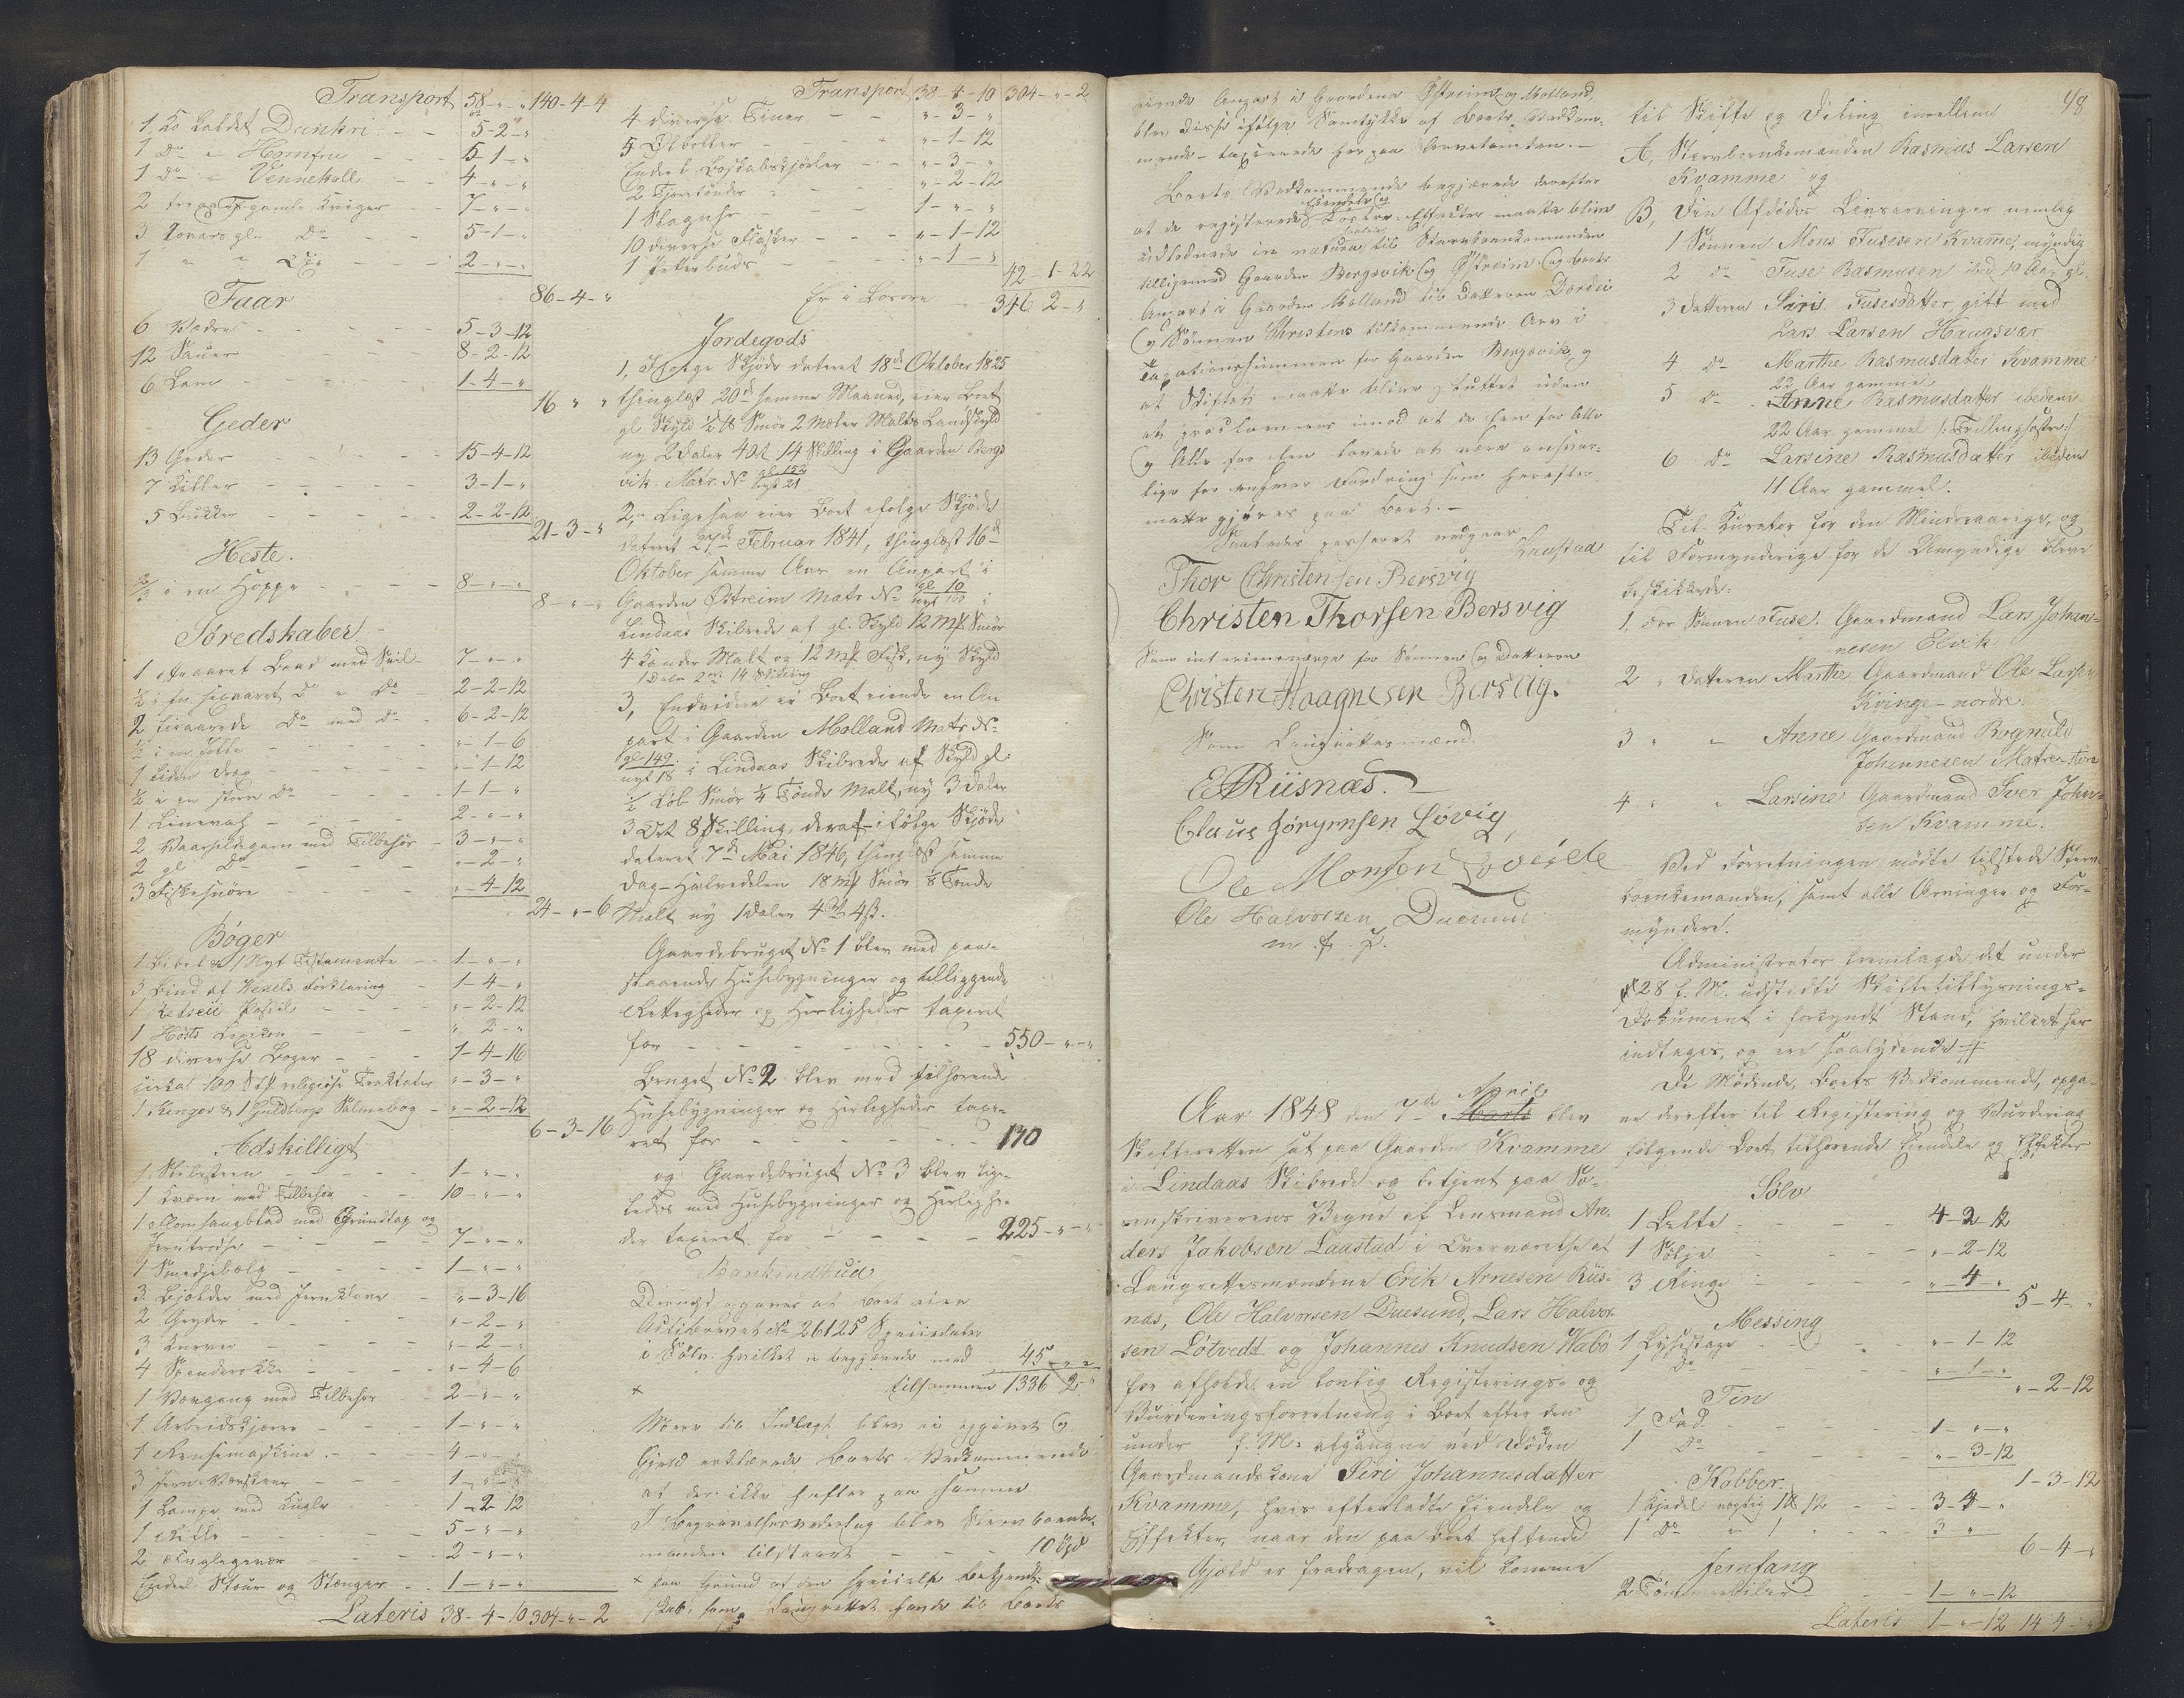 Transport 58 - " - " 140 - 4 - 4
1 Ko kaldet Dunkri - - 5 - 2 - "
1 Do " Homfru - - 5 - 1 - "
1 Do " Vennekoll - - 4 - " - "
2 gamle Kviger - - 7 - " - "
3 Aars gl. Do - - 5 - 1 - "
1 " " - - 2 - " - "
86 - 4 - "
Faar
6 Vædre - - 5 - 3 - 12
12 Sauer - - 8 - 2 - 12
6 Lam - - 1 - 4 - "
16 " "
Geder
13 Geder - - 15 - 4 - 12
7 Killer - - 3 - 1 - "
5 Bukker - - 2 - 2 - 12
21 - 3 - "
Heste.
i en Hoppe - - 8 - " - "
8 - " - "
Søredskaber
1 Baad med Seil - 7 - " - "
½ i en sexaaret Do " Do - 2 - 2 - 12
2 firaarede Do med Do - 6 - 2 - 12
½ i en Jolle - - " - 1 - 6
1 liden Dræg - - " - 1 - 12
½ i en større Do - - 1 - 1 - "
1 - - 2 - " - "
2 Vaarsildegarn med Tilbehør - 3 - " - "
2 gl Do - - " - 2 - "
3 Fiskesnøre - - " - 4 - 12
24 - " - 6
Bøger
1 Bibel & 1 Nyt Testamente - - 1 - " - "
3 Bind af Wexels Forklaring - 1 - 4 - "
1 Postil - - " - 2 - 12
1 Høsts Lexikon - - " 2 - "
18 diverse Bøger - - 1 - 4 - 16
cirka 100 Stk religiøse Traktater " - 3 - "
1 Kingos & 1 Guldbergs Salmebog - " - 2 - 12
6 - 3 - 16
Adskilligt
1 Slibesteen - - 1 - " - "
1 Kværn med Tilbehør - - 10 - " - "
1 Flomsaugblad med Grundtag og
- - 7 - " - "
1 Smedjebælg - - 1 - " - "
3 Bjelder med Jernklave - " - 3 - 16
2 Gryder - - " - 2 - "
3 Kurver - - " - 2 - "
4 Spinderokke - - " - 4 - 6
1 Vævgang med Tilbehør - 2 - " - "
1 Arbeidskjerre - - 1 - " - "
1 Rensemaskine - - 4 - " - "
3 - - 1 - " - "
1 Lampe med Kugle - - 1 - 2 12
1 - - 5 - " - "
2 - - 2 - " - "
Endeel Staur og Stænger - - 1 - " - "
Lateris 38 - 4 - 10 304 - " - 2
Transport 38 - 4 - 10 304 - " - 2
4 diverse Tiner - - " - 3 - "
5 Ølbøtter - - " - 1 - 12
Endeel Boskabskjørler - - " - 3 - "
2 Tjæretønder - - " - 2 - 12
1 Slaguhr - - 1 - " - "
10 diverse Flasker - - " - 1 - 12
1 - - " - 1 - "
42 - 1 - 22
Er i Løsøre - 346 2 - "
Jordegods
1, Ifølge Skjøde dateret 18de Oktober 1825
thinglæst 20de samme Maaned, eier Boet
gl Skyld ½ Smør 2 Mæler Malts Landskyld
ny 2 Daler 4 Ort 14 Skilling i Gaarden Bergs
vik Matr. No gl 152 nyt 21
2, Ligesaa eier Boet ifølge Skjøde
dateret Februar 1841, thinglæst 16de
Oktober samme Aar en Anpart i
Gaarden Østreim Matr No i
Lindaas Skibrede af gl. Skyld 12 Mk Smør
4 Kander Malt og 12 Mk Fisk, ny Skyld
1 Daler 2 Ort 14 Skilling
3, Endvidere er Boet eiende en An
part i Gaarden Molland Matr No
gl 149 nyt 18 i Lindaas Skibrede af Skyld gl:
½ Løb Smør ¼ Tønde Malt, ny 3 Daler
3 Ort 8 Skilling, deraf ifølge Skjøde
dateret 7de Mai 1846, thinglæst samme
Dag - Halvedelen 18 Mk Smør ⅛ Tønde
Malt ny 1 Daler 4 Ort 4 s.
Gaardebruget No 1 blev med paa-
staaende Husebygninger og tilliggende
Rettigheder og Herligheder taxeret
for - - - 550 - " - "
Bruget No 2 blev med tilhørende
Husebygninger og Herligheder taxe-
ret for - - - 170
og Gaardebruget No 3 blev lige-
ledes med Husebygninger og Herlighe-
der taxeret for - - - 225 - " - "
Bankindskud
Dernæst opgaves at Boet eier
Actiebrevet No 26125 Speciedaler
i Sølv hvilket er med 45 - " - "
x tilsammen 1336 2 - "
Mere til Indtægt blev ei opgivet og
Gjeld erklærede Boets Vedkommende
at der ikke hæfter paa samme
I Begravelsesvederlag blev Stervboenke-
manden tilstaaet - - 10 Spd
x paa Grund af den specielle Bekjendt-
skab, som Laugrettet havde til Boets
eiende Anpart i Gaardene Østreim og Molland,
blev disse ifølge Samtykke af Boets Vedkom-
mende - taxerede her paa Arvetomten. -
Boets Vedkommende begjærede derefter
at de registrerede Eiendele og Løsøre-Effecter maatte blive
udlodnede in natura til Stervboenkemanden
tilligemed Gaarden Bergsvik og Østreim og Boets
Anpart i Gaarden Molland til Datteren Dordei
og Sønnen Christens tilkommende Arv i
Taxationssummen for Gaarden Bergsvik, og
at Skiftet maatte blive sluttet uden
at proclameres imod at de Een for Alle
og Alle for Een lovede at være ansvar-
lige for enhver Fordring som herefter
maatte gjøres paa Boet. -
Saaledes passeret vedgaar
Laastad
Thor Christensen Bersvig
Christen Thorsen Bersvig
Som interimsværge for Sønnen og Datteren
Christen Haagnesen Bersvig.
Som Laugrettesmænd
E Riisnæs. -
Claus Jørgensen Løvig,
Ole Monsen
Ole Halvorsen Duesund
m. f. P.
Aar 1848 den 7de Marts April blev
Skifteretten sat paa Gaarden Kvamme
i Lindaas Skibrede og betjent paa So-
renskriverens Vegne af Lensmand An-
ders Jakobsen Laastad i Overværelse af
Laugrettesmændene Erik Arnesen Riis-
næs, Ole Halvorsen Duesund, Lars Halvor-
sen Løtvedt og Johannes Knudsen Wabø
for afholde en lovlig Registerings- og
Vurderingsforretning i Boet efter den
under f. M. afgangne ved Døden
Gaardmandskone Siri Johannesdatter
Kvamme, hvis efterladte Eiendele og
Effekter, naar den paa Boet heftende
Gjæld er fradragen, vil komme
48
til Skifte og Deling imellem
A, Stervboenkemanden Rasmus Larsen
Kvamme og
B, Den Afdødes Livsarvinger nemlig
1 Sønnen Mons Fusesen Kvamme, myndig
2 do Fuse Rasmusen ibid 19 Aar gl.
3 Datteren Siris Fusesdatter gift med
Lars Larsen Haugsvær
4 do Marthe Rasmusdatter Kvamme
22 Aar gammel
5 do Anne Rasmusdatter ibidem
22 Aar gammel /: Tvillingsøstre :/
6 do Larsine Rasmusdatter ibidem
11 Aar gammel.
Til Kurator for den Mindreaarige, og
til Formynderige for de Umyndige bleve
beskikkede:
1, For Sønnen Fuse, Gaardmand Lars Johan-
nesen Elvik
2 " Datteren Marthe Gaardmand Ole Larsen
Kvinge - nordre
3 " " Anne Gaardmand Rognald
Johannesen Matre - store
4 " " Larsine Gaardmand Iver Johan-
sen Kvamme.
Ved Forretningen mødte tilstede Sterv-
boenkemanden, samt alle Arvinger og For-
myndere.
Administrator fremlagde det under
28 f. M. udstedte Skiftetillysnings-
Dokument i forkyndt Stand, hvilket her
indtages, og er saalydende #
De Mødende, Boets Vedkommende, opga-
ve derefter til Registering og Vurdering
følgende Boet tilhørende Eiendele og Effekter
Sølv
1 Belte - - 4 - 2 12
1 Sølje - - " - 2 - 12
3 Ringe - - " - 4 - "
5 - 4 - "
Messing
1 Lysestage - - " - 1 - 12
1 Do - - " - 1 - "
" - 2 - 12
Tin
1 Fad - - 1 - " - "
1 Do - - " - 3 - 12
1 - 3 - 12
Kobber
1 Kjedel 12 - - 3 - 4 - "
1 Do " 1 - - 3 "
6 - 4 - "
Jernfang
2 Tømmerbiler - - 1 - " - 12
Lateris 1 - " - 12 14 4 - "